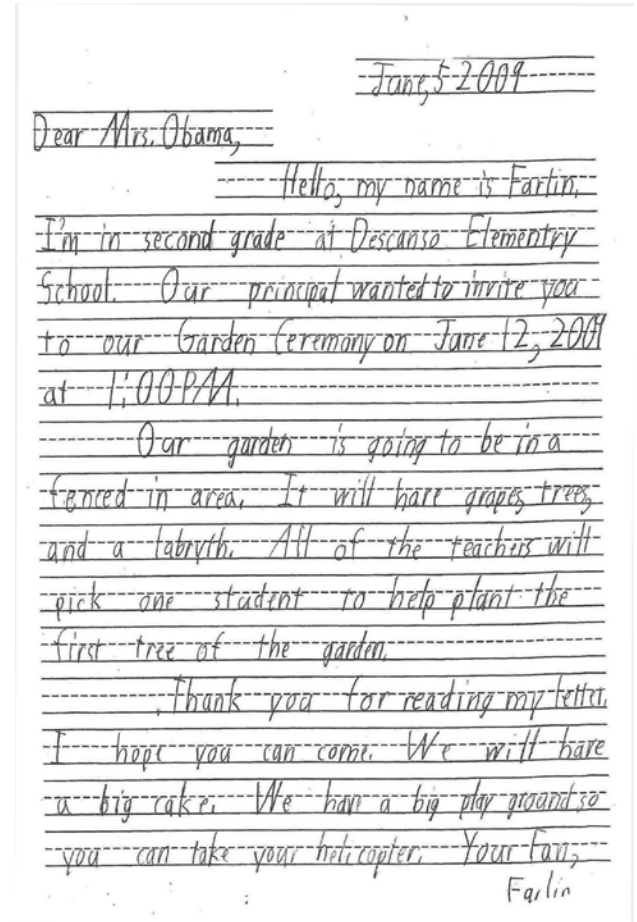 June, 5 2009
Dear Mrs. Obama,
Hello, my name is Farlin.
I'm in second grade at Descanso Elementry
School. Our principal wanted to invite you
to our Garden Ceremony on June 12, 2009
at 1:00 PM.
Our garden is going to be in a
fenced in area. It will have grapes, trees,
and a labryth. All of the teachers will
pick one student to help plant the
first tree of the garden.
Thank you for reading my letter.
I hope you can come. We will have
a big cake. We have a big play ground so
you can take your helicopter. Your fan,
Farlin